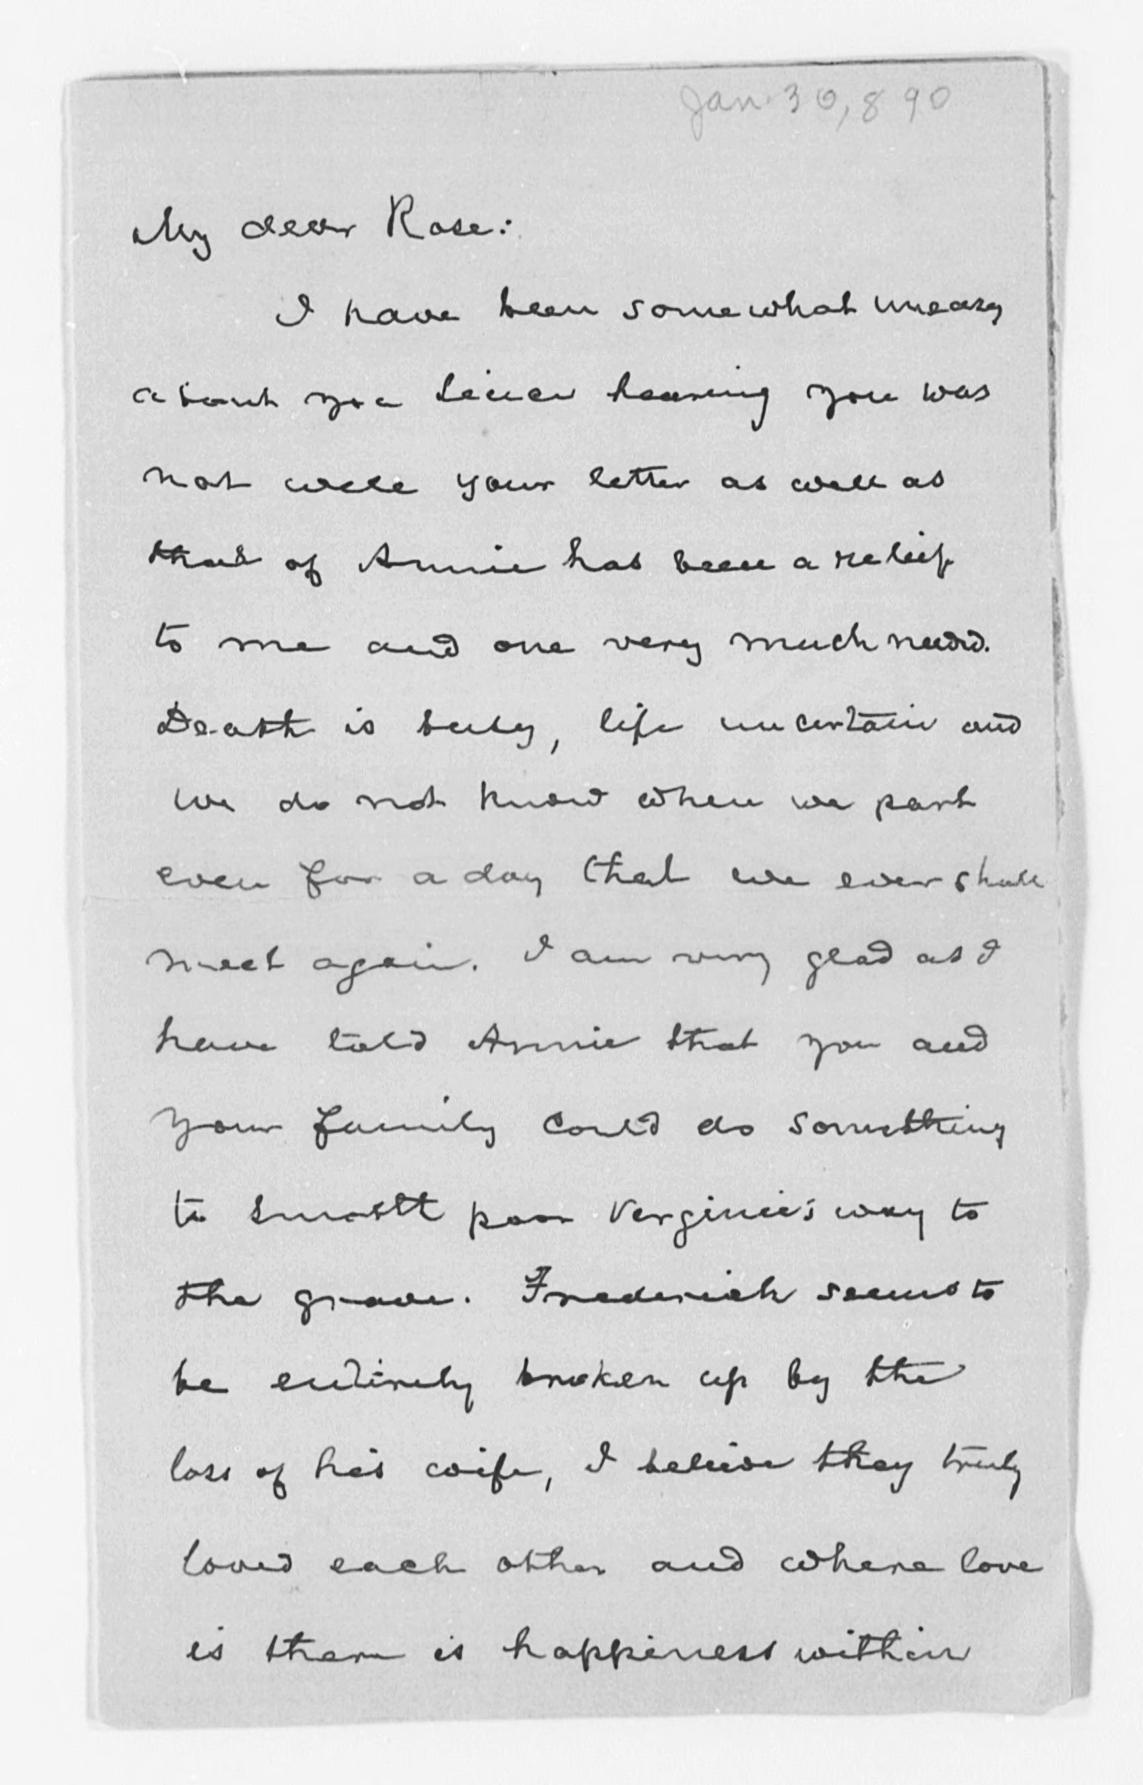 Jan. 30, 890
My dear Rose:
I have been somewhat uneasy
about you since hearing you was
not well your letter as well as
that of Annie has been a relief
to me and one very much needed.
Death is busy, life uncertain and
we do not know when we part
even for a day that we ever shall
meet again. I am very glad as I
have told Annie that you and
your family could do something
to smooth poor Verginie's way to
the grave. Frederick seems to
be entirely broken up by the
loss of his wife, I believe they truly
loved each other and where love
is there is happiness within